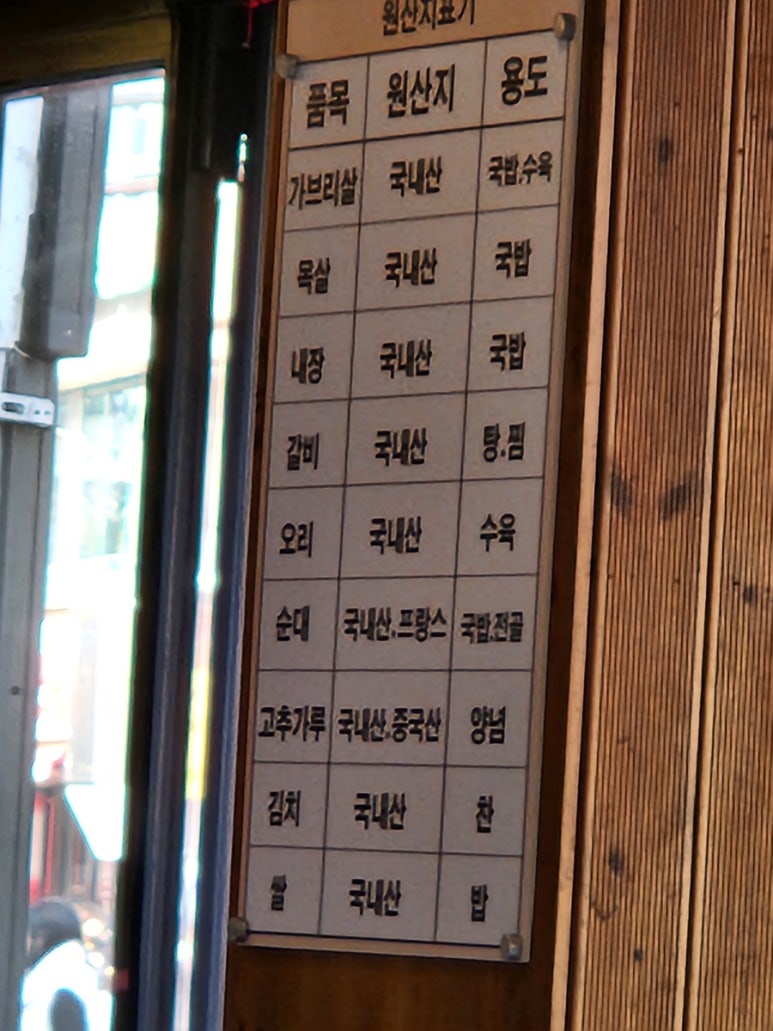 원산지표기
품목 원산지 용도
가브리살 국내산 국밥.수육
목살 국내산 국밥
내장 국내산 국밥
갈비 국내산 탕.찜
오리 국내산 수육
순대 국내산.프랑스 국밥.전골
고추가루 국내산.중국산 양념
김치 국내산 찬
쌀 국내산 밥